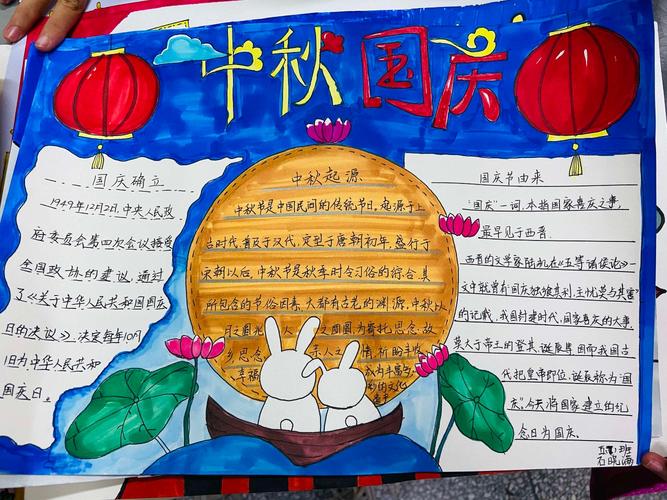 中秋国庆
国庆确立
1949年12月2日,中央人民政
府委员会第四次会议接受
全国政协的建议,通过
了《关于中华人民共和国国庆
日的决议》,决定每年10月
1日为中华人民共和
国庆日。
中秋起源
中秋节是中国民间的传统节日,起源于上
古时代,普及于汉代,定型于唐朝初年,盛行于
宋朝以后,中秋节是秋季时令习俗的综合,其
所包含的节俗因素,大都有古老的渊源,中秋以
月之圆兆人 月圆为寄托思念故
乡思念 亲人之情,祈盼丰收
幸福 成为丰富
的文化
国庆节由来
"国庆"一词,本指国家喜庆之事,
最早见于西晋。
西晋的文学家陆机在《五等诸侯论》一
文中就曾有国庆独飨其利,主忧莫与其害"
的记载,我国封建时代,国家喜庆的大事,
莫大于帝王的登基,诞辰等因而我国古
代把皇帝即位,诞辰称为"国
庆"。今天称国家建立的纪
念日为国庆。
班
石晓涵